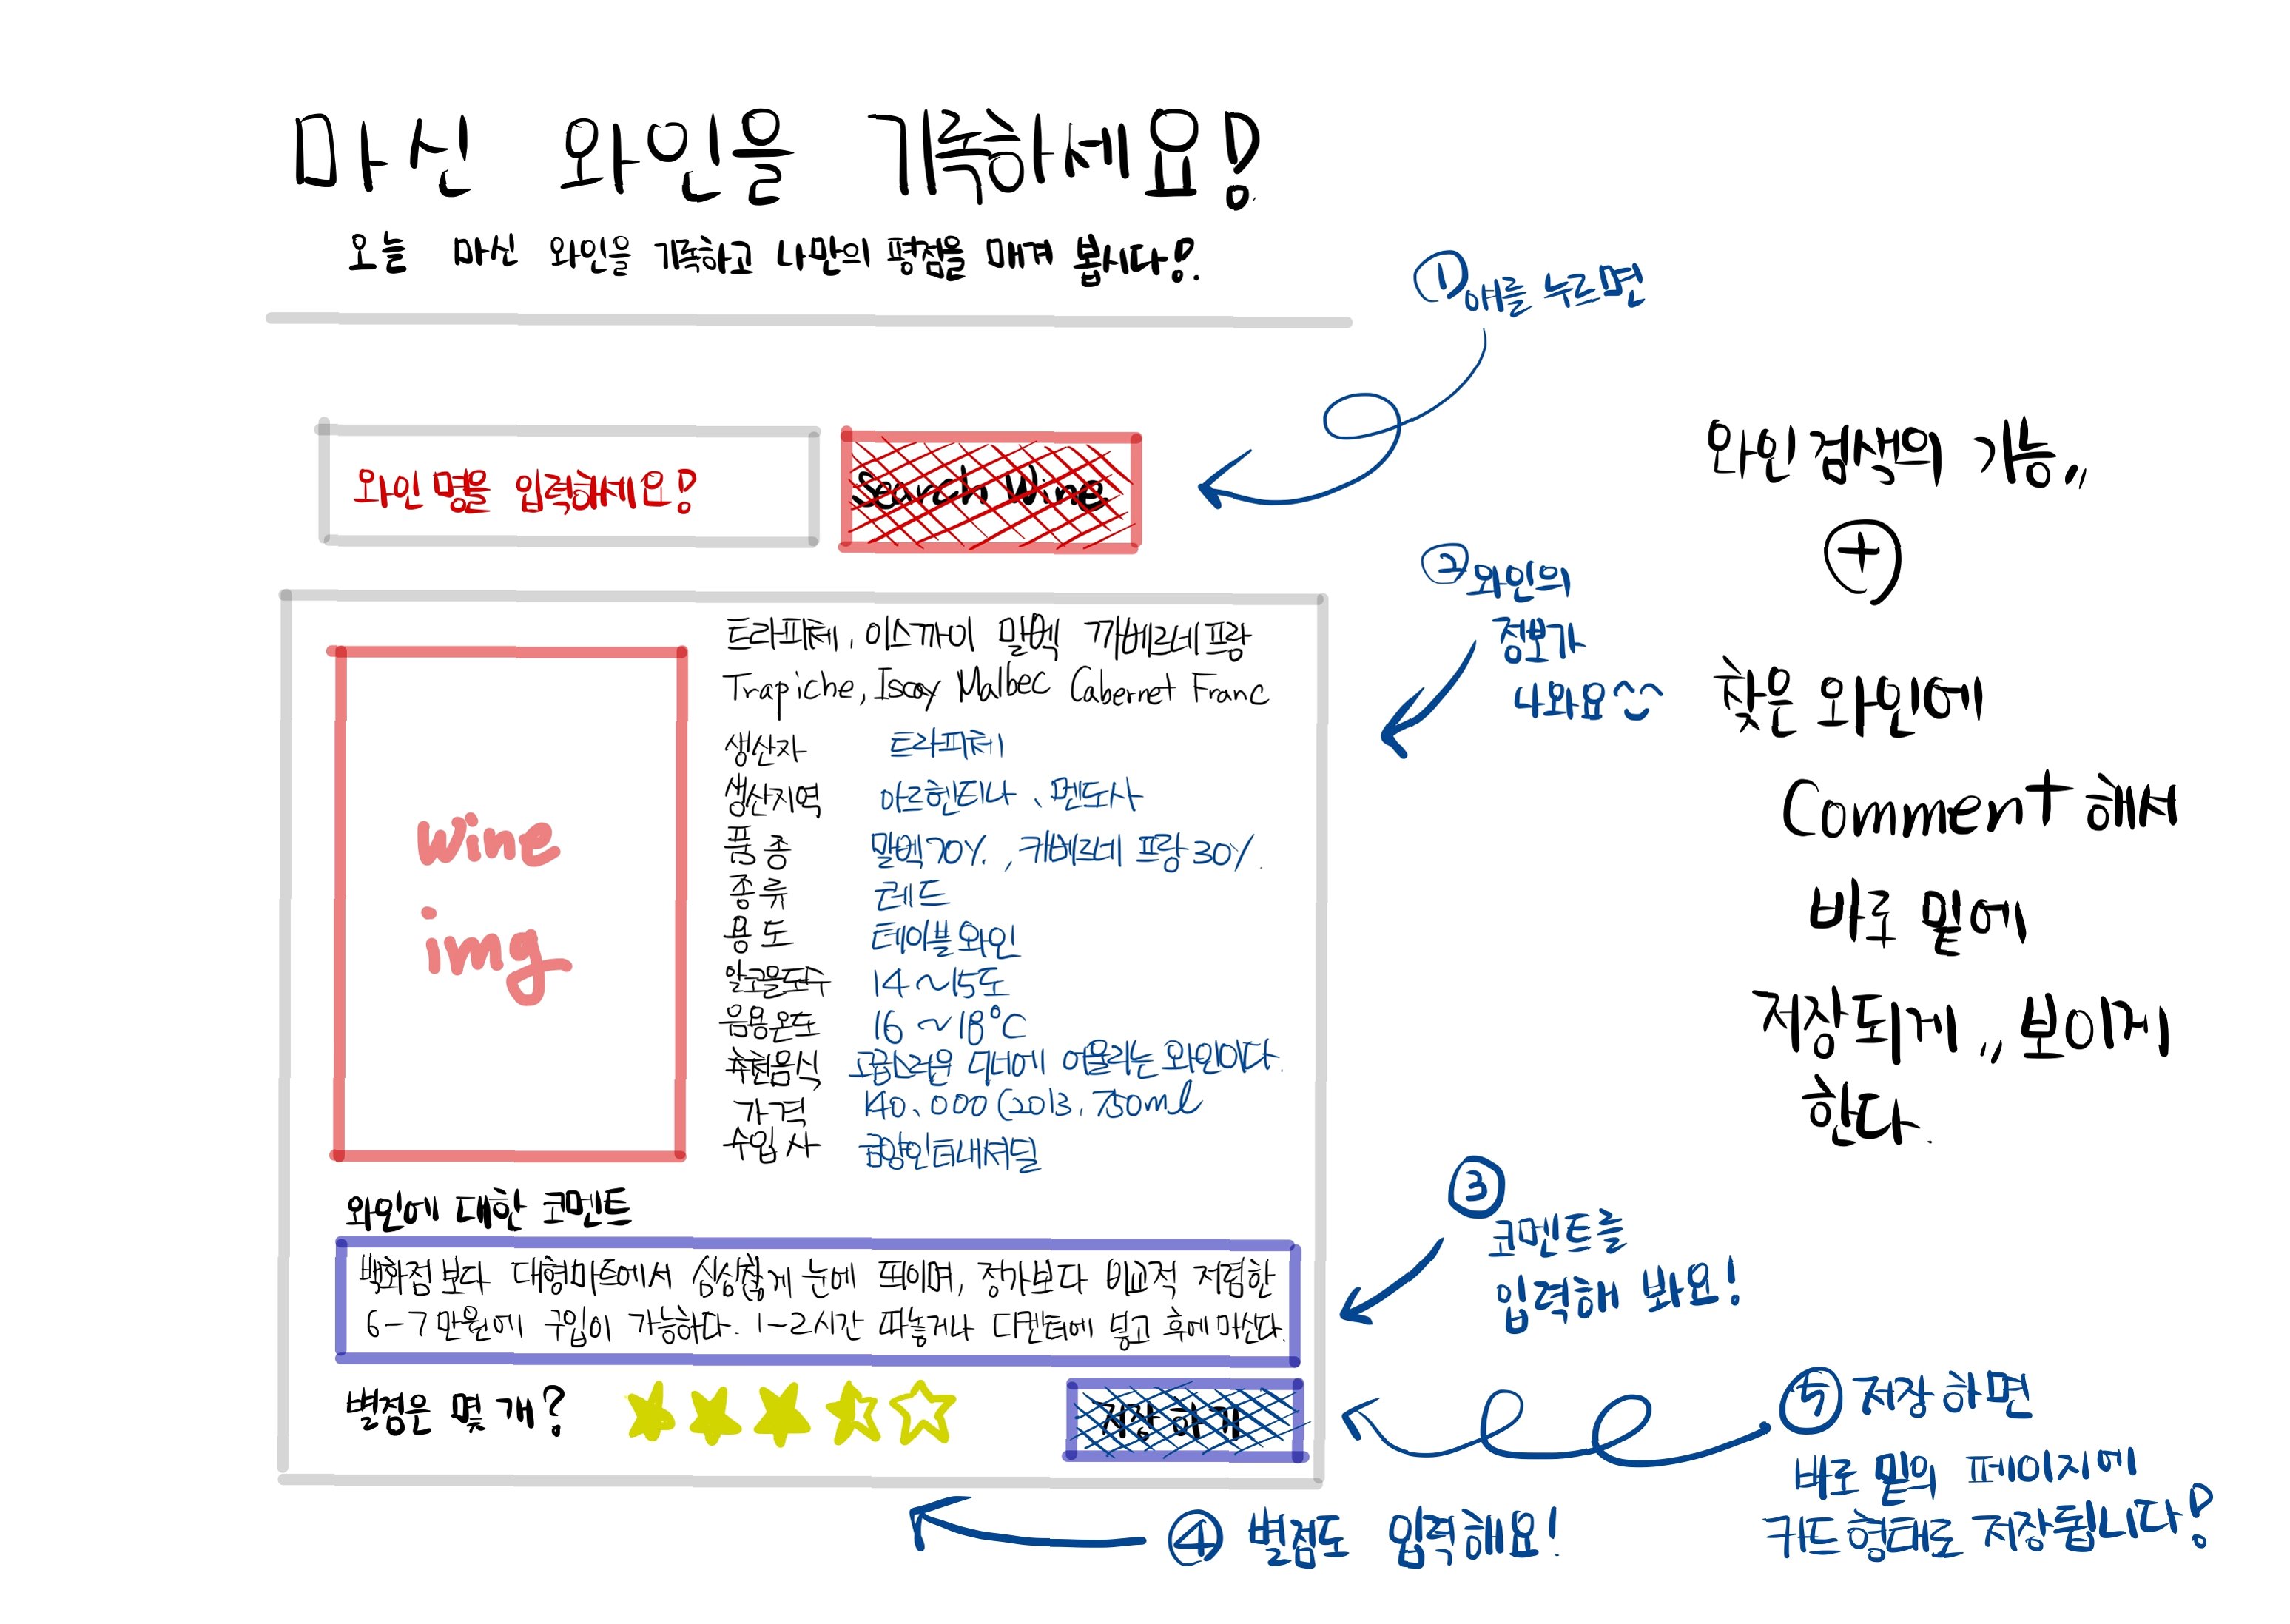 마신 와인을 기록하세요!
오늘 마신 와인을 기록하고 나만의 평점을 매겨 봅시다!
① 얘를 누르면
와인 명을 입력하세요!
Search Wine
와인검색의 기능,,
+
찾은 와인에
Comment 해서
바로 밑에
저장되게,, 보이게
한다.
② 와인의
정보가
나와요^^
wine
img
트라피체, 이스까이 말벡 까베르네 프랑
Trapiche, Iscay Malbec Cabernet Franc
생산자 트라피체
생산지역 아르헨티나, 멘도사
품종 말벡 70%, 카베르네 프랑 30%.
종류 레드
용도 테이블 와인
알코올도수 14~15도
음용온도 16~18°C
추천음식 고급스러운 디너에 어울리는 와인이다.
가격 140,000 (2013, 750ml
수입사 금양인터내셔널
와인에 대한 코멘트
백화점 보다 대형마트에서 심심찮게 눈에 띄이며, 정가보다 비교적 저렴한
6-7만원에 구입이 가능하다. 1-2시간 따놓거나 디켄터에 넣고 후에 마신다.
③ 코멘트를
입력해 봐요!
별점은 몇 개?
저장하기
④ 별점도 입력해요!
⑤ 저장하면
바로 밑의 페이지에
카드형태로 저장됩니다!